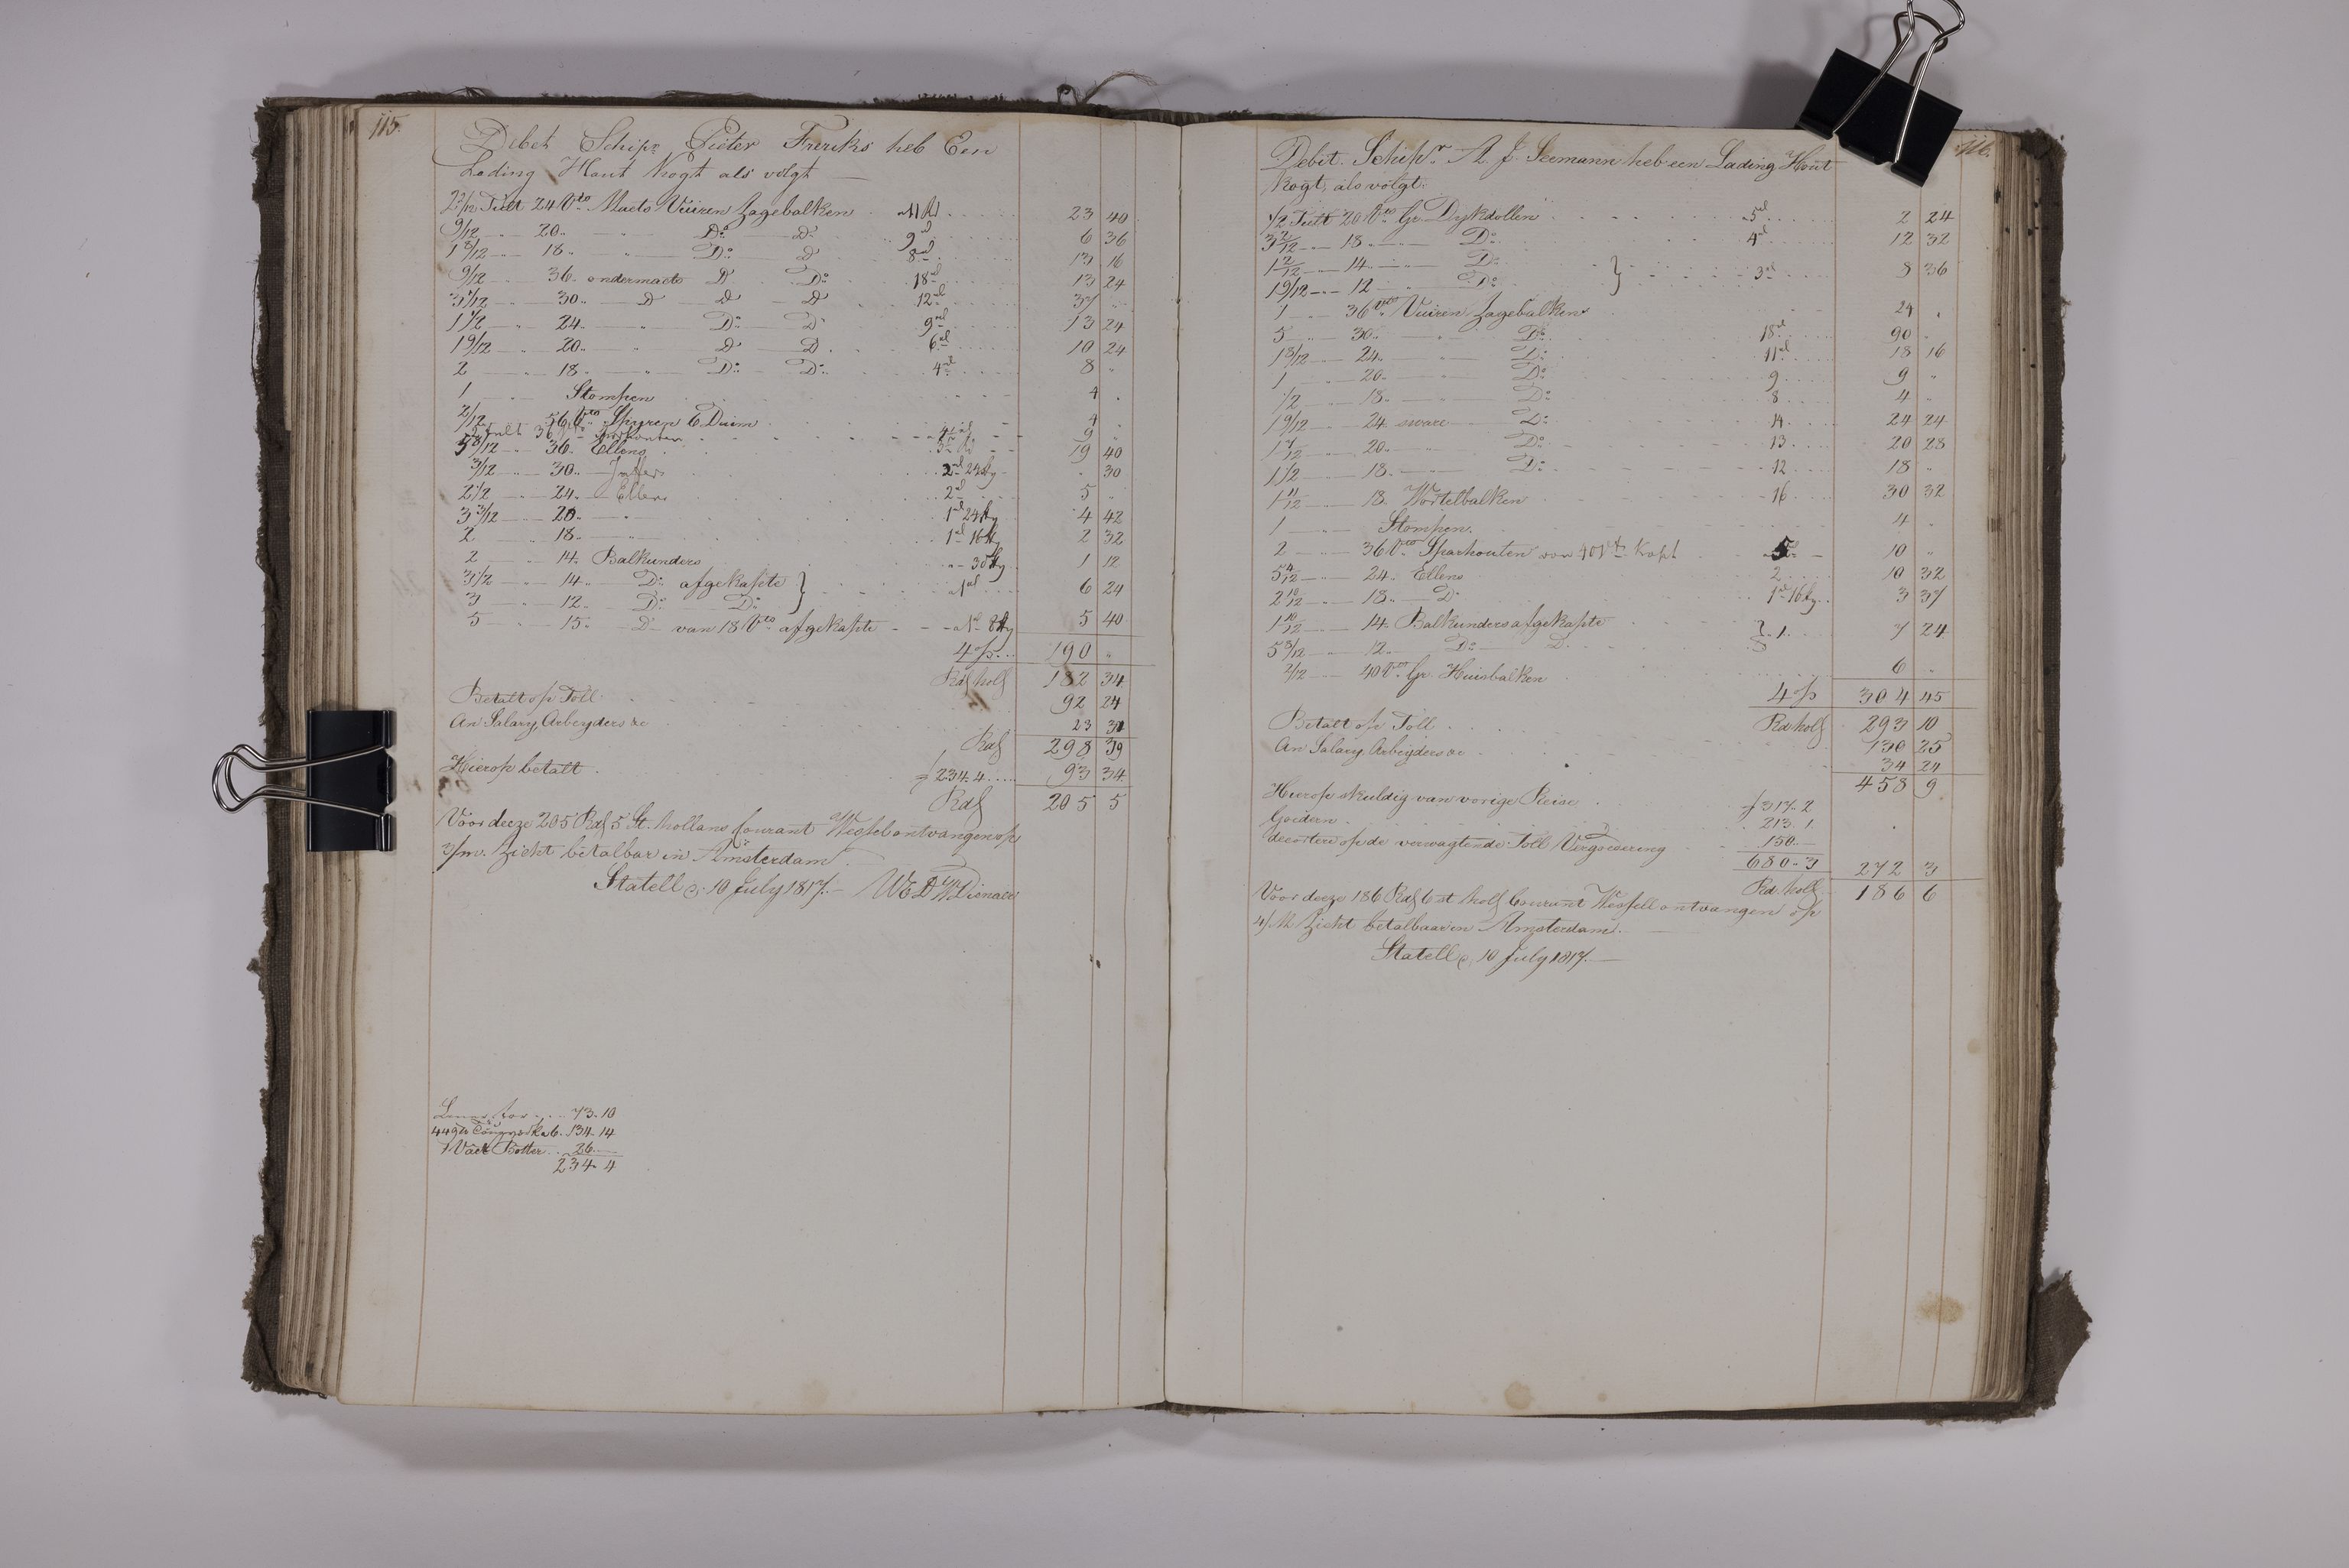 115.
Debet Schipr Pieter Freriks heb Een
Lading Hout Kogt als volgt
2 2/12 Tult 24 Vto Maets Vüüren Zagebalken 11 Rd 23 40
9/12 20 " Do D 9rd 6 36
1 8/12 18 " Do D 8rd 13 16
9/12 36 ondermaets D Do 18rd 13 24
3 1/12 30 D D D 12rd 37 "
1 1/2 24 " Do D 9rd 13 24
1 9/12 20 " D D 6rd 10 24
2 18 " Do Do 4rd 8 "
1 Stompen 4 "
2/12 56 Vto Spyren 6 Duim 4
2 Tult 36 9 "
5 8/12 36 Ellens 3 1/2 Rd 19 40
3/12 30 Juffers 2rd 24 30
2 1/2 24 Ellens 2rd 5 "
3 3/12 20 " 1rd 24 4 42
2 18 " 1rd 16 2 32
2 14 Balkunders 30 1 12
3 1/2 14 Do afgekapte } 1rd 6 24
3 12 Do Do
5 15 D van 18 Vto afgekapte 1rd 8 5 40
4 p 190 "
Rd holl 182 34
Betalt op Toll 92 24
An Salary, Arbeyders &c 23 31
Rd 298 39
Hierop betalt f 234.4 93 34
Rd 205 5
Voor deeze 205 Rd 5 St. hollans Courant Wessel ontvangen op
3/m. Zicht betalbar in Amsterdam
Statell d: 10 July 1817.
73.10
134.14
1 Vaet Botter 26
234 4
116.
Debit. Schipr A. J. Seemann heb een Lading Hout
Kogt, als volgt.
1/2 Tult 20 Vto Gr Dykdollen 5rd 2 24
3 2/12 18 Do 4rd 12 32
1 2/12 14 Do } 3rd 8 36
1 9/12 12 Do
1 36 Vto Vuiren Zagebalken 24 "
5 30 Do 18rd 90 "
1 8/12 24 Do 11rd 18 16
1 20 Do 9 9 "
1/2 18 Do 8 4 "
1 9/12 24 sware Do 14 24 24
1 7/12 20 Do 13 20 28
1 1/2 18 Do 12 18 "
1 11/12 18 Wortelbalken 16 30 32
1 Stompen 4 "
2 36 Vto Sparhouten von 40 Vto Kapt 5rd 10 "
5 4/12 24 Ellens 2 10 32
2 10/12 18 D 1rd 16 3 37
1 10/12 14 Balkunders afgekapte } 1 7 24
5 3/12 12 Do D
2/12 40 Vto Gr Huisbalken 6 "
4 p 304 45
Rd holl 293 10
Betalt op Toll 130 25
An Salary, Arbeyders &c 34 24
458 9
Hierop skuldig van vorige Reise f 317.2
Goedern 213.1
deesteere op de verwagtende Toll Vergoedering 150
680.3 272 3
Rd holl 186 6
Voor deeze 186 Rd 6 st holl Courant Wessell ontvangen op
4/M Zicht betalbaar in Amsterdam.
Statell d: 10 July 1817.